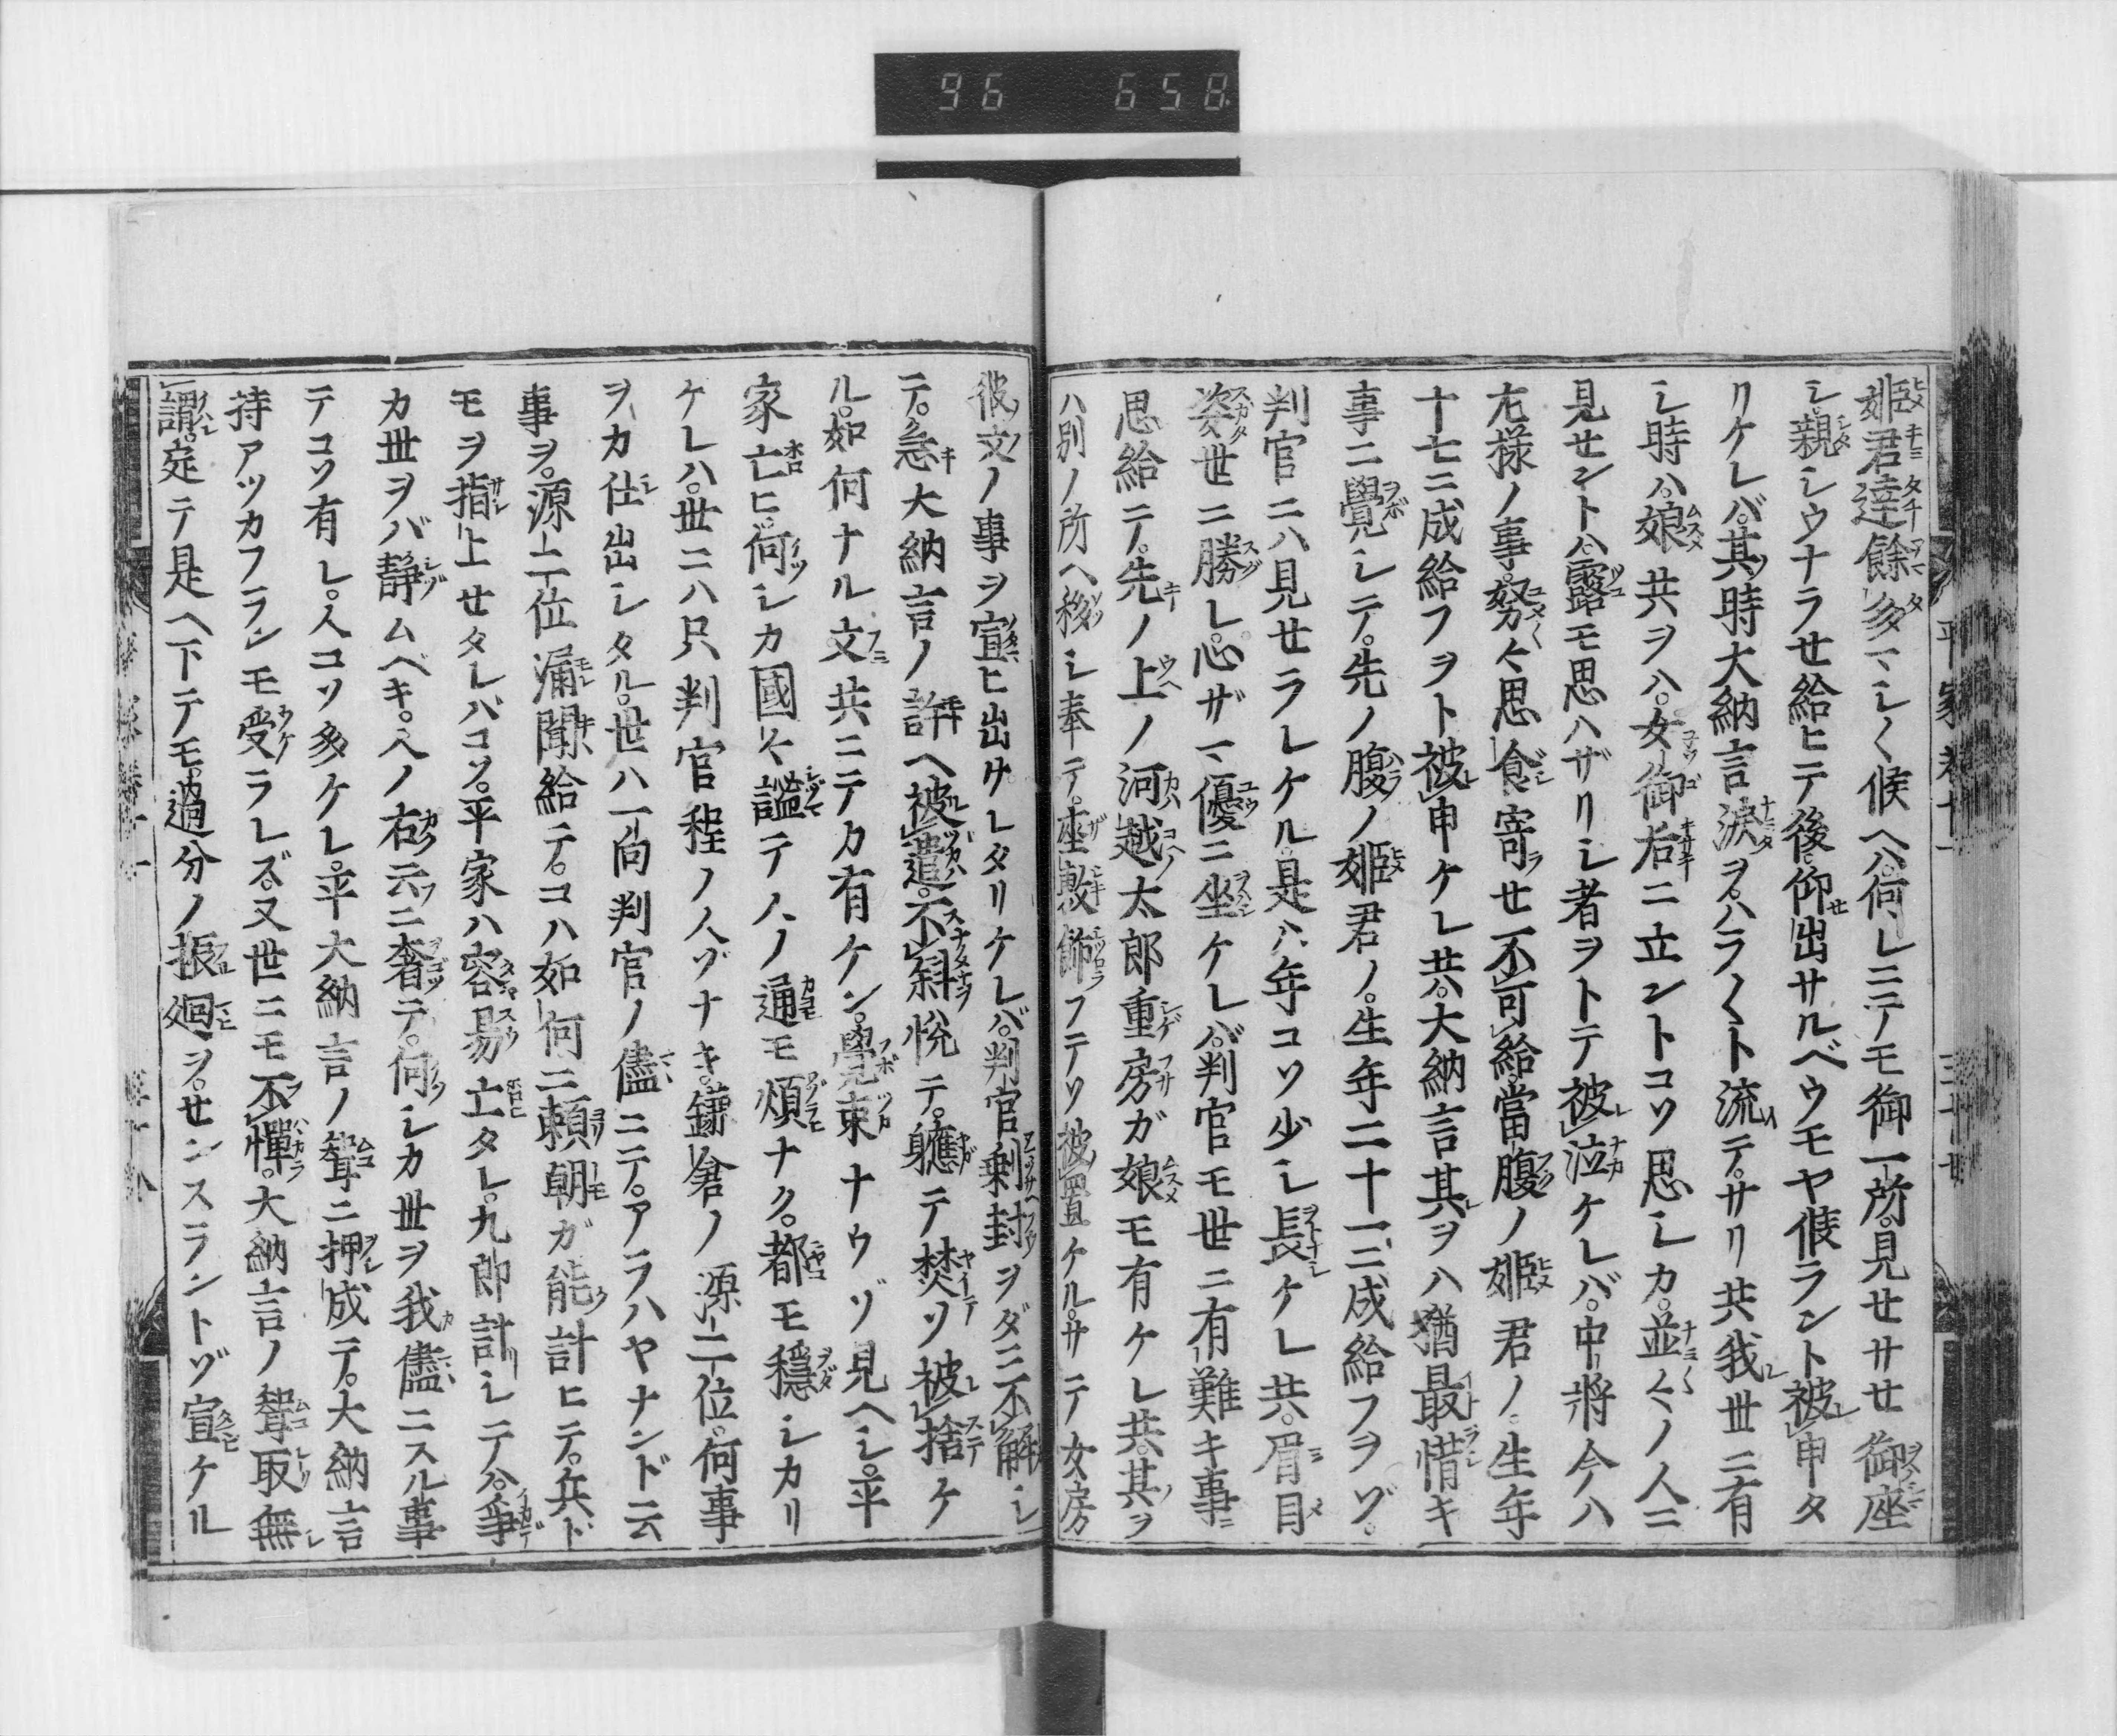 96 658
平家巻十一 三十廿
姫君達餘多マシ〱候ヘハ。何レニテモ御一所。見せサせ御座
シ。親シウナラせ給ヒテ後。仰出サルベウモヤ候ラント被申タ
リケレバ。其時大納言涙ヲ。ハラ〱ト流テ。サリ共我丗ニ有
シ時ハ。娘共ヲハ。女御后ニ立ントコソ思シカ。並々ノ人ニ
見せントハ。露モ思ハザリシ者ヲトテ被泣ケレバ。中將今ハ
左様ノ事。努々思食寄せ不可給。當腹ノ姫君ノ。生年
十七ニ成給フヲト被申ケレ共。大納言其ヲハ猶最惜キ
事ニ覺シテ。先ノ腹ノ姫君ノ。生年二十一ニ成給フヲゾ。
判官ニハ見せラレケル。是ハ年コソ少シ長ケレ共。眉目
姿世ニ勝レ。心ザマ優ニ坐ケレバ。判官モ世ニ有難キ事ニ
思給ニテ。先ノ上ノ河越太郎重房ガ娘モ有ケレ共。其ヲ
ハ別ノ所ヘ移シ奉テ。座敷飾フテソ被置ケル。サテ女房
彼文ノ事ヲ宣ヒ出サレタリケレバ。判官剰封ヲダニ不解シ
テ。急大納言ノ許ヘ被遣。不斜悦テ。軈テ焚ソ被捨ケ
ル。如何ナル文共ニテカ有ケン。覺束ナウゾ見ヘシ。平
家亡ヒ。何シカ國々謐テ人ノ通モ煩ナク。都モ穏シカリ
ケレハ。丗ニハ只判官程ノ人ゾナキ。鎌倉ノ源二位。何事
ヲカ仕出シタル。世ハ一向判官ノ儘ニテ。アラハヤナンド云
事ヲ。源二位漏聞給テ。コハ如何ニ頼朝ガ能計ヒテ。兵ド
モヲ指上せタレバコソ。平家ハ容易亡タレ。九郎計シテハ。爭
カ丗ヲバ靜ムベキ。人ノ右云ニ奢テ。何シカ丗ヲ我儘ニスル事
テコソ有レ。人コソ多ケレ。平大納言ノ聟ニ押成テ。大納言
持アツカフラシモ受ラレズ。又世ニモ不憚。大納言ノ聟取無
謂。定テ是ヘ下テモ。過分ノ振廻ヲ。せンスラントゾ宣ケル